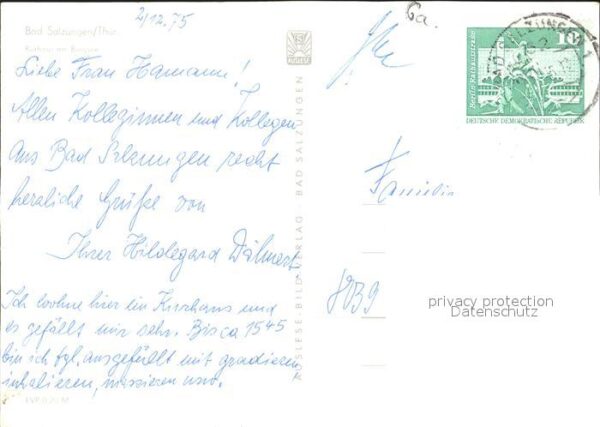 2/12.75
Ga.
Bad Salzungen/Thür.
Kurhaus am Burgsee
Liebe Frau Hamann!
Allen Kolleginnen und Kollegen
aus Bad Salzungen recht
herzliche Grüße von
Ihrer Hildegard
Ich wohne hier ein Kurhaus und
es gefällt mir sehr. Bis ca 1545
bin ich tgl. ausgefüllt mit gradieren,
inhalieren, massieren usw.
AUSLESE-BILD-VERLAG · BAD SALZUNGEN
10
Berlin, Rathausstraße
DEUTSCHE DEMOKRATISCHE REPUBLIK
Familie
8039
privacy protection
Datenschutz